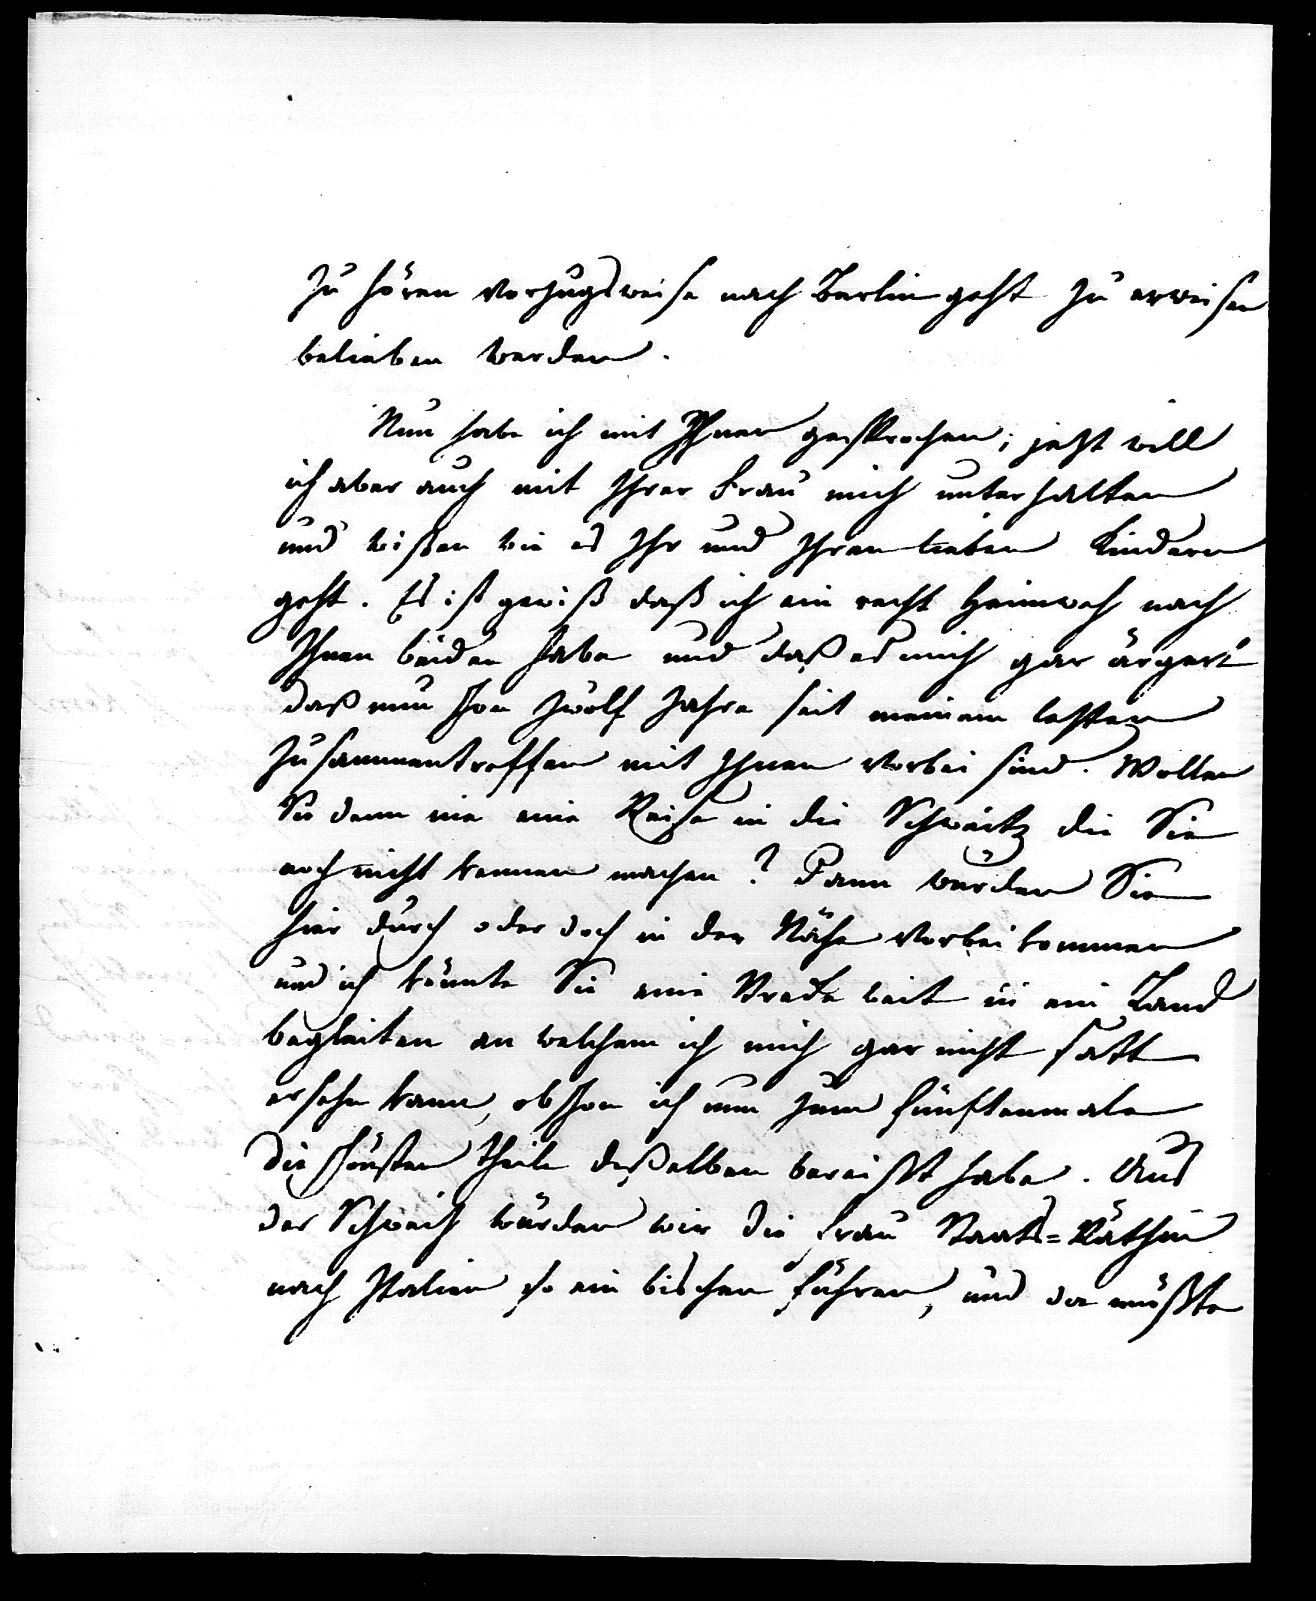 zu hören vorzugsweise nach Berlin geht zu erweisen
belieben werden.
Nun habe ich mit Ihnen gesprochen; jetzt will
ich aber auch mit Ihrer Frau mich unterhalten
und wißen wie es Ihr und Ihren lieben Kindern
geht. Es ist gewiß daß ich ein recht Heimweh nach
Ihnen beiden habe und daß es mich gar ärgert
daß nun schon zwölf Jahre seit meinem letzten
Zusammentreffen mit Ihnen vorbei sind. Wollen
Sie denn nie eine Reise in die Schweitz die Sie
noch nicht kennen machen? Dann würden Sie
hier durch oder doch in der Nähe vorbei kommen
und ich könnte Sie eine Strecke weit in ein Land
begleiten an welchem ich mich gar nicht satt
ersehn kann, obschon ich nun zum fünftenmale
die schönsten Theile deßelben bereißt habe. Aus
der Schweitz würden wir die Frau Staats=Räthin
nach Italien so ein bischen führen, und da müßte